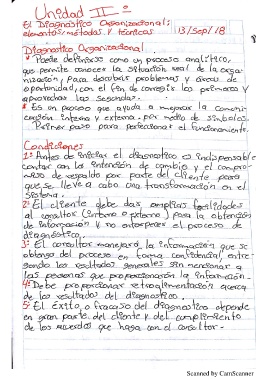 Unidad II
El Diagnostico Organizacional:
elementos, métodos y técnicas 13/Sep/18
Diagnostico Organizacional
* Puede definirse como un proceso analítico,
que permite conocer la situación real de la orga-
nización, para descubrir problemas y áreas de
oportunidad, con el fin de corregir los primeros y
aprovechar las segundas.
* Es un proceso que ayuda a mejorar la comuni-
cación interna y externa por medio de simbolos.
Primer paso para perfeccionar el funcionamiento.
Condiciones
1= Antes de iniciar el diagnostico es indispensable
contar con la intención de cambio y el compro-
miso de respaldo por parte del cliente para
que se lleve a cabo una transformación en el
sistema.
2= El cliente debe das amplias facilidades
al consultor (interno o externo) para la obtención
de información y no entorpecer el proceso de
diagnóstico.
3= El consultor manejará la información que se
obtenga del proceso en forma confidencial, entre-
gando los resultados generales sin mencionar a
las personas que proporcionarón la información.
4= Debe proporcionar retroalimentación acerca
de los resultados del diagnostico.
5= El éxito o fracaso del diagnostico depende
en gran parte del cliente y del cumplimiento
de los acuerdos que haga con el consultor.
Scanned by CamScanner